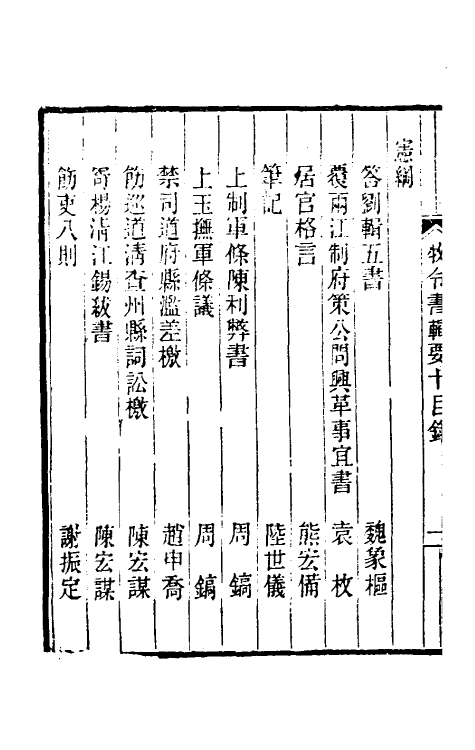 牧令書輯要十目錄
憲綱
答劉輯五書　魏象樞
覆兩江制府策公問興革事宜書　袁枚
居官格言　熊宏備
筆記　陸世儀
上制軍條陳利弊書　周鎬
上玉撫軍條議　周鎬
禁司道府縣濫差檄　趙申喬
飭巡道清查州縣詞訟檄　陳宏謀
寄楊清江錫紱書　陳宏謀
飭吏八則　謝振定